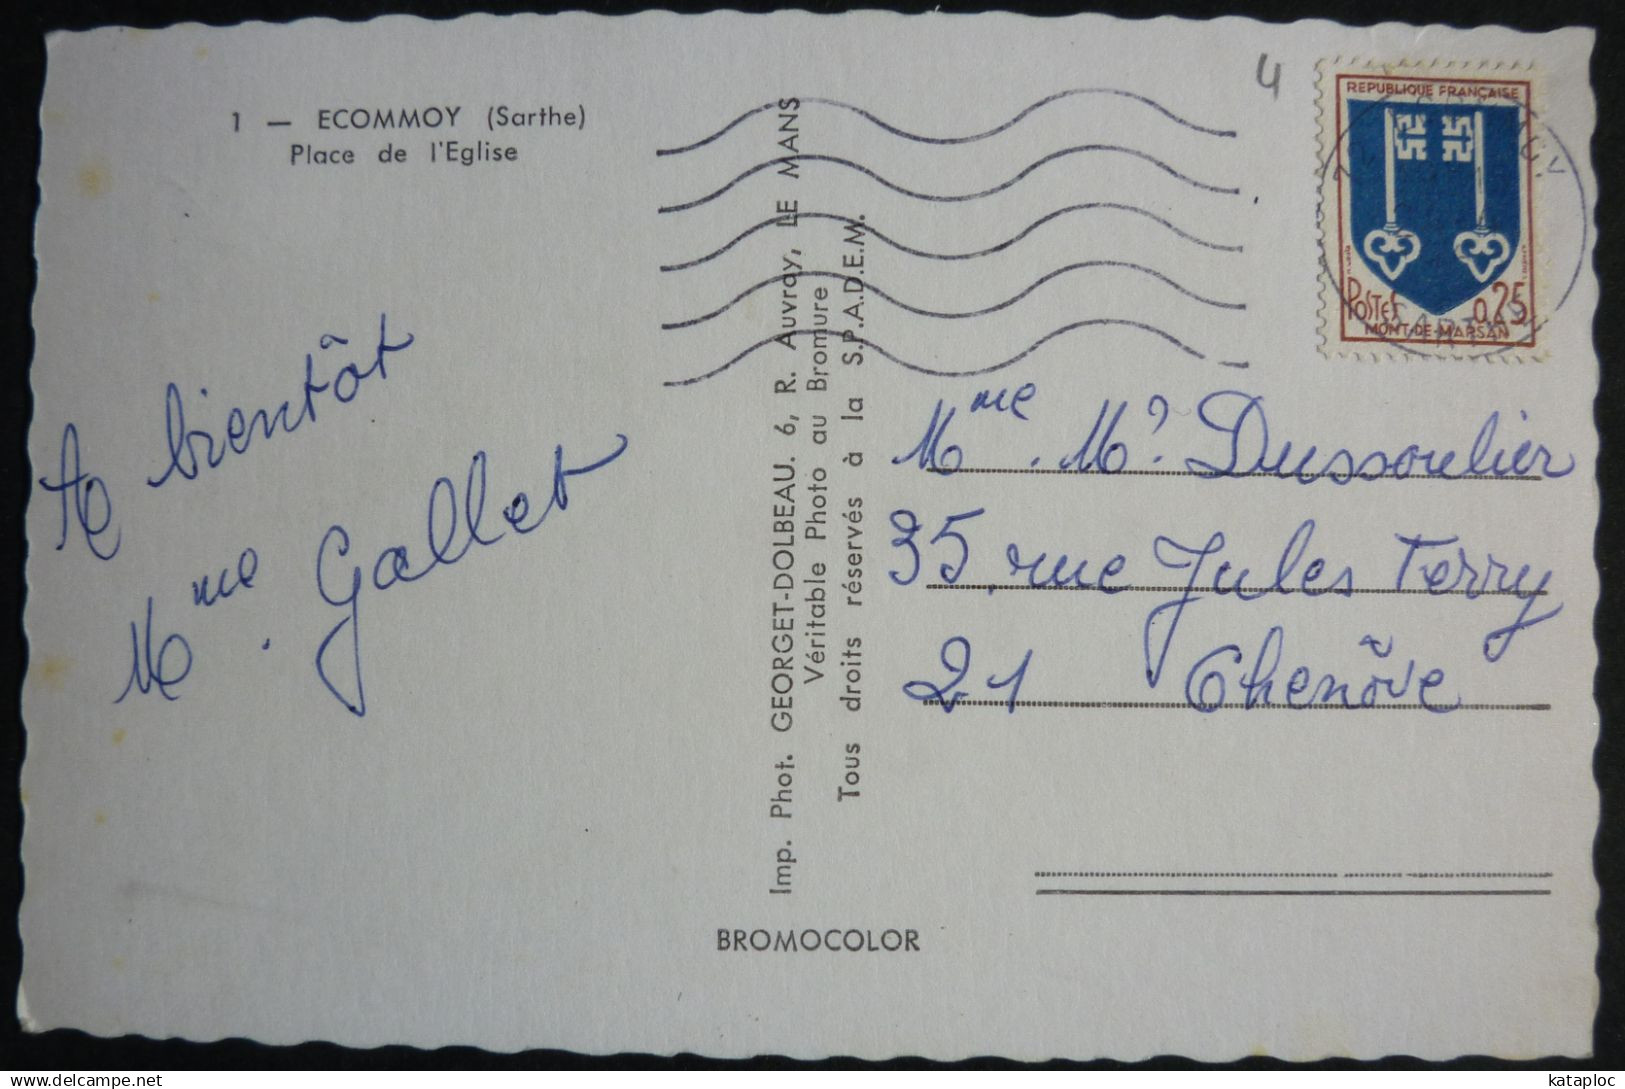 1 — ECOMMOY (Sarthe)
Place de l'Eglise
A bientôt
Mme. Gallet
Imp. Phot. GEORGET-DOLBEAU. 6, R. Auvray, LE MANS
Véritable Photo au Bromure
Tous droits réservés à la S.P.A.D.E.M.
BROMOCOLOR
4
REPUBLIQUE FRANÇAISE
POSTES 0,25
MONT-DE-MARSAN
Mme. M? Dussoulier
35, rue Jules Ferry
21 Chenôve
kataploc